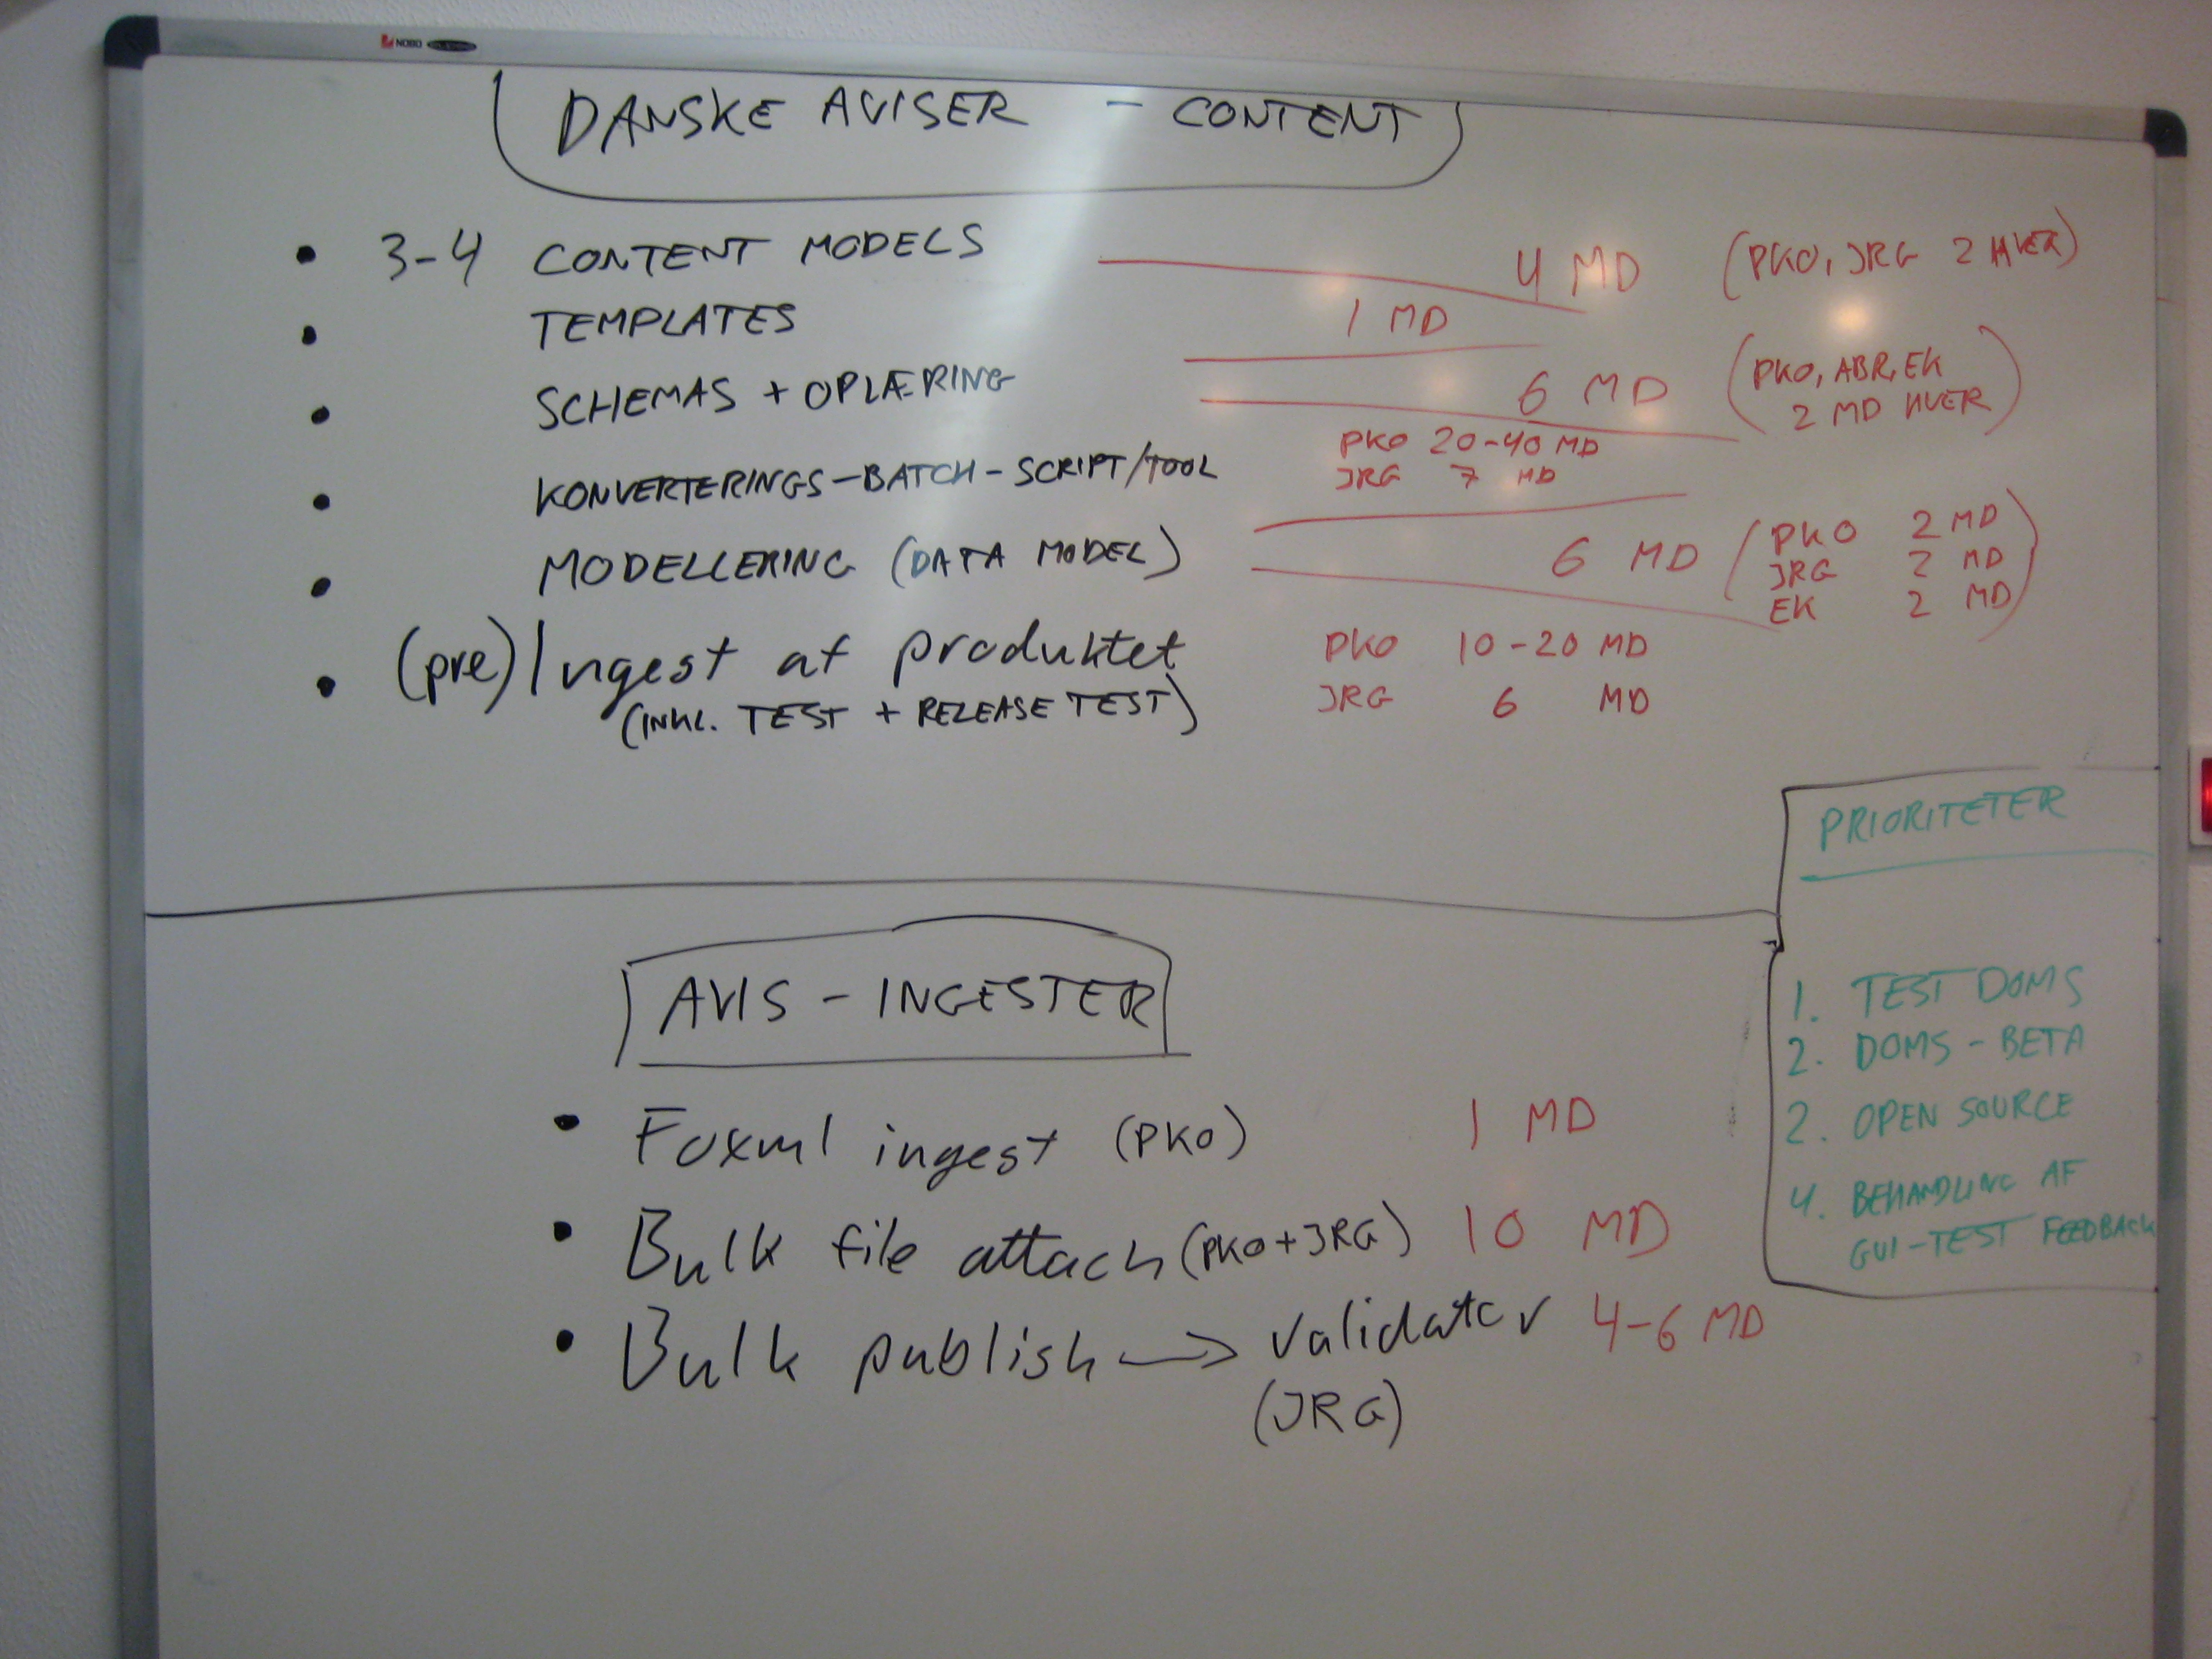 NOBO
DANSKE AVISER - CONTENT
• 3-4 CONTENT MODELS 4 MD (PKO, JRG 2 HVER)
• TEMPLATES 1 MD
• SCHEMAS + OPLÆRING 6 MD (PKO, ABR, EK
2 MD HVER)
• KONVERTERINGS-BATCH-SCRIPT/TOOL PKO 20-40 MD
JRG 7 MD
• MODELLERING (DATA MODEL) 6 MD (PKO 2 MD
JRG 2 MD
EK 2 MD)
• (pre) Ingest af produktet PKO 10-20 MD
(INKL. TEST + RELEASE TEST) JRG 6 MD
PRIORITETER
1. TEST DOMS
2. DOMS - BETA
2. OPEN SOURCE
4. BEHANDLING AF
GUI-TEST FEEDBACK
AVIS - INGESTER
• Foxml ingest (PKO) 1 MD
• Bulk file attach (PKO + JRG) 10 MD
• Bulk publish → validator 4-6 MD
(JRG)